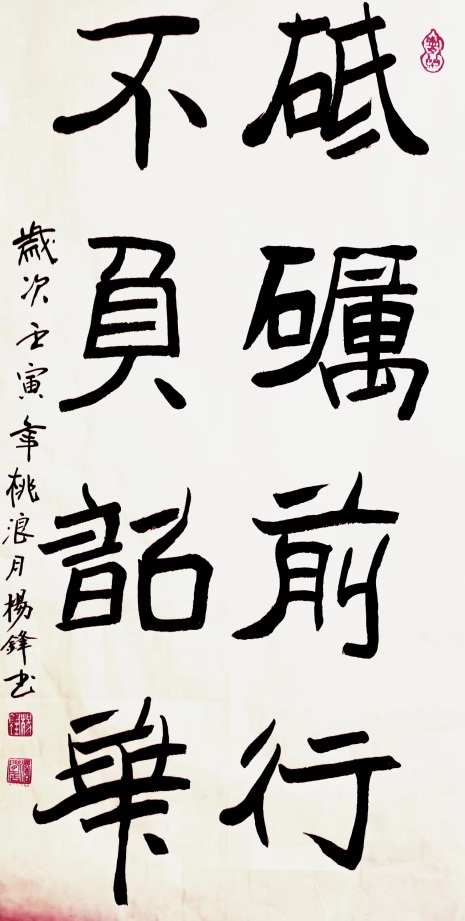 砥礪前行
不負韶華
歲次壬寅年桃浪月楊鋒书